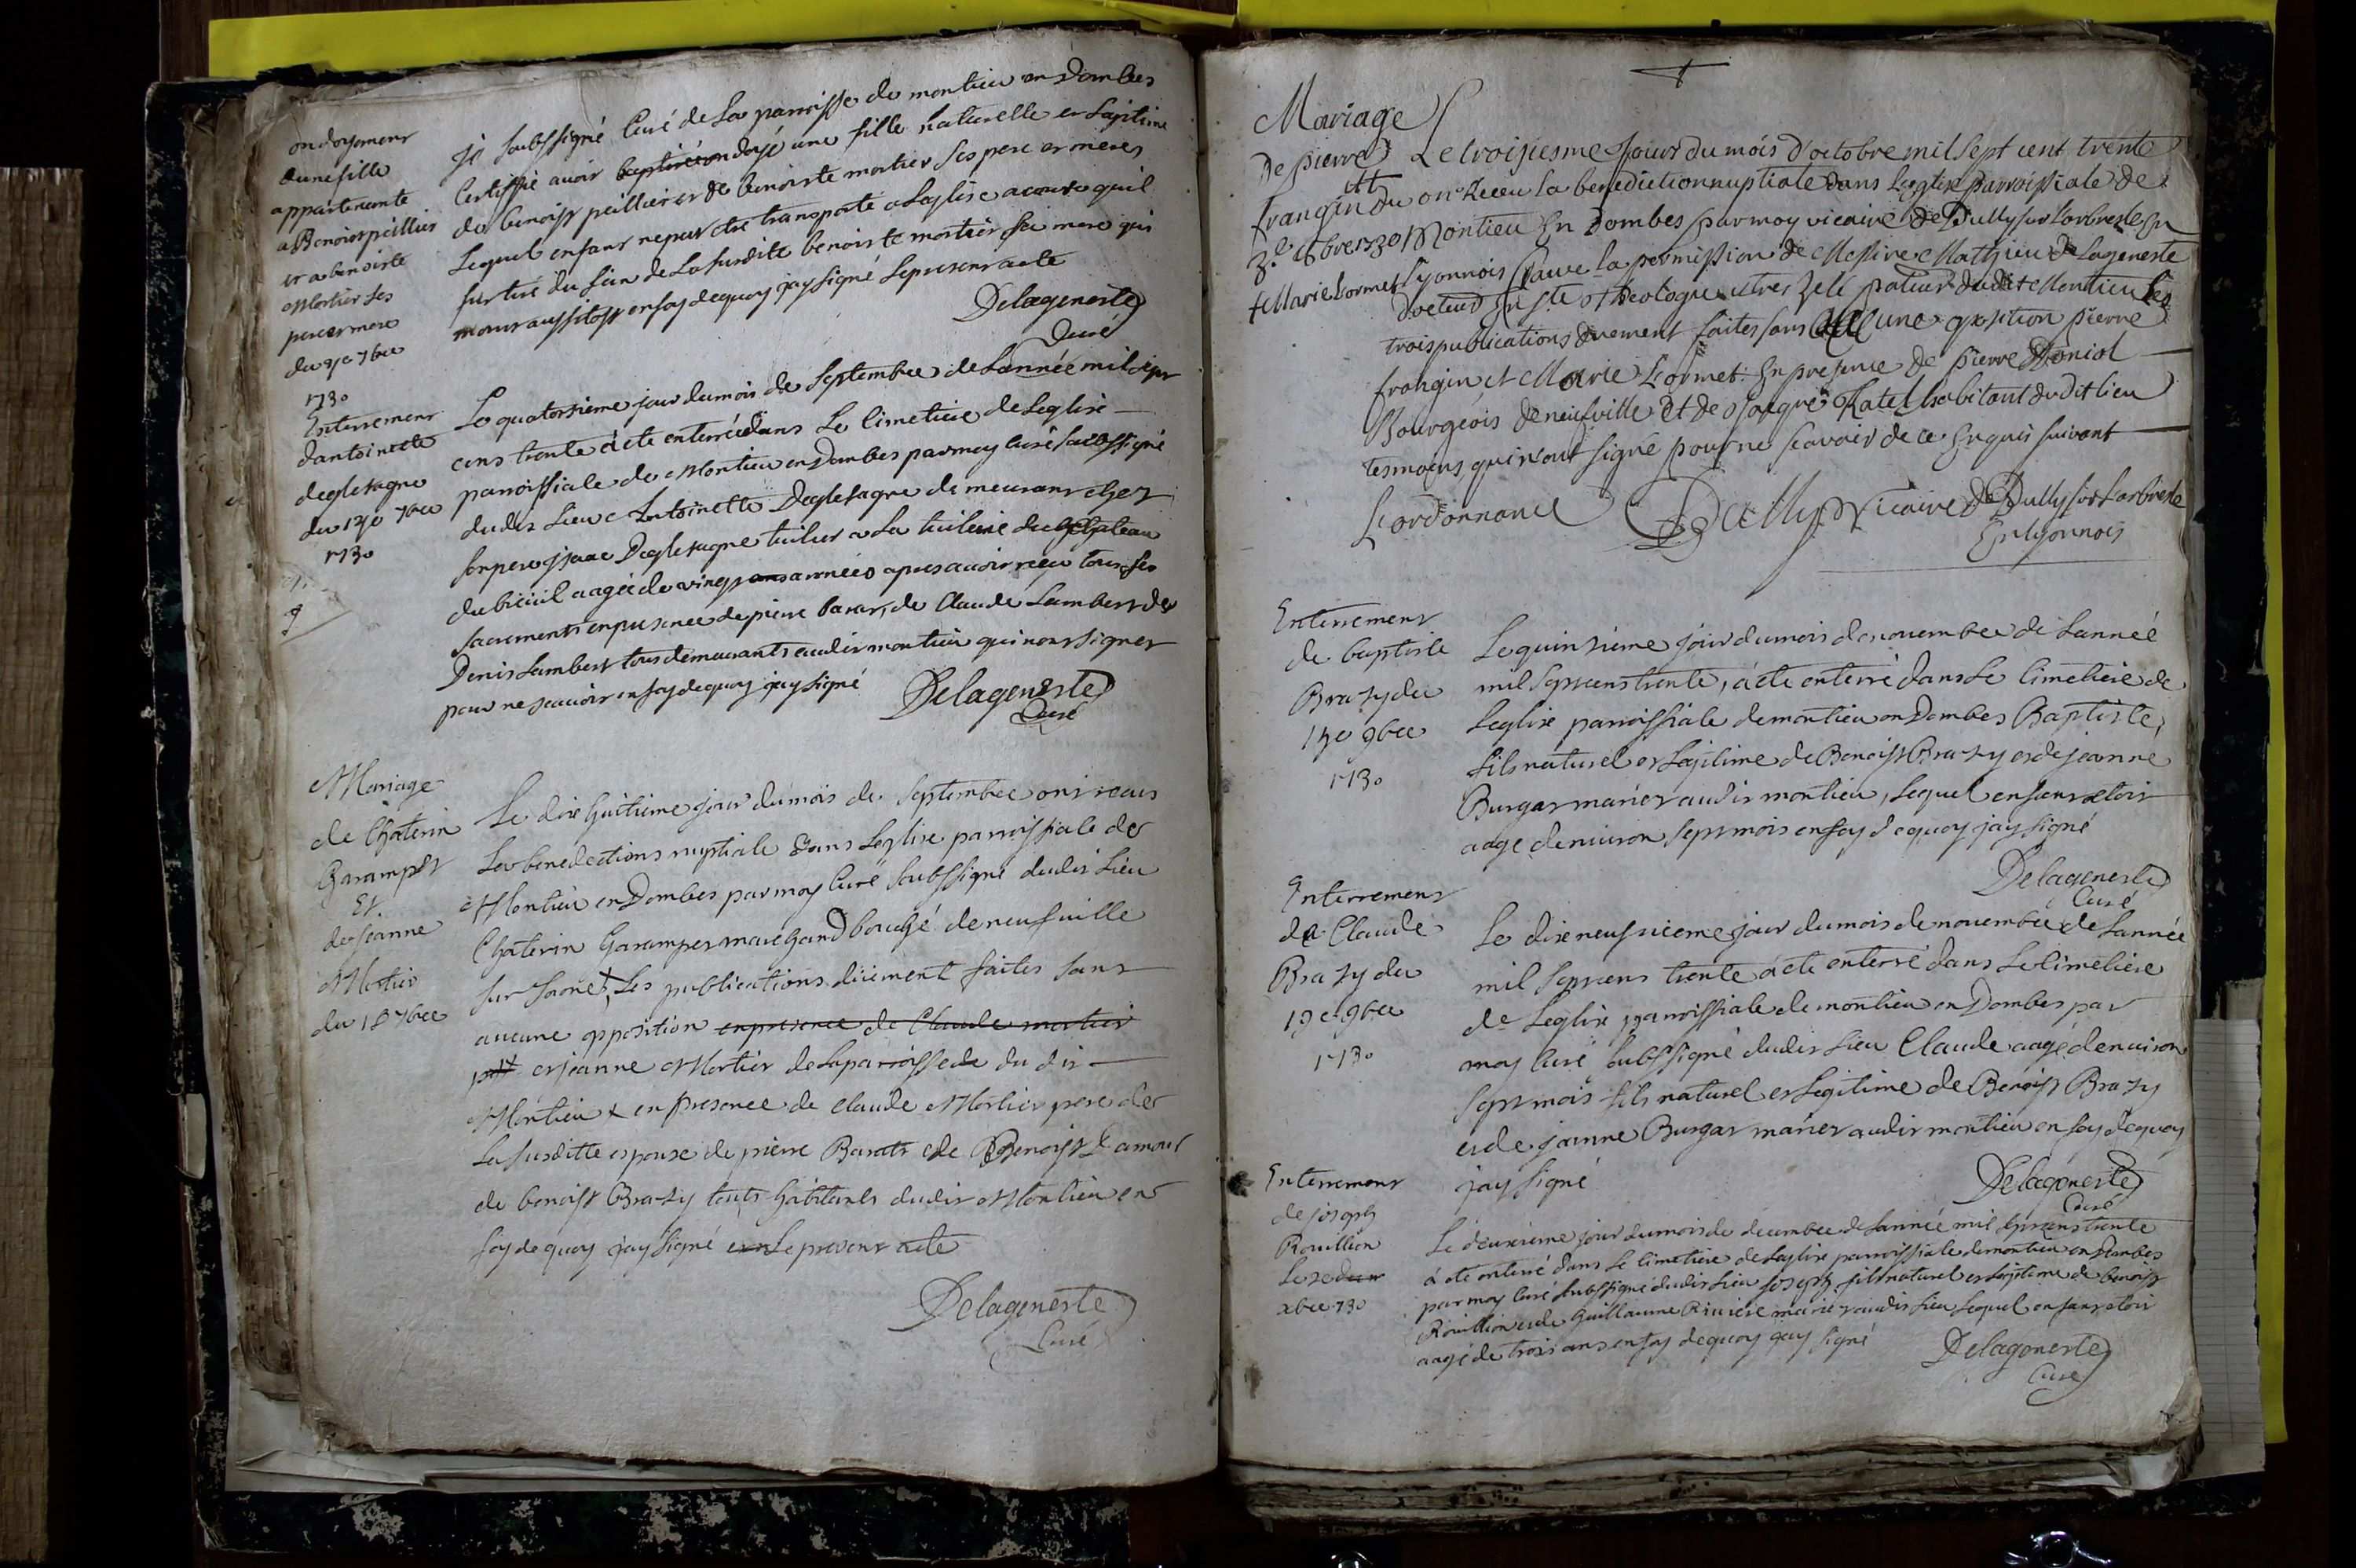 ondoyement
dunefille
appartenante
a Benoist peillier
et a benoiste
Mortier ses
pere et mere
du 9e 7bre
1730
je soubssigné Curé de La parroisse de montieu en Dombes
Certiffie avoir baptiré ondoyé une fille naturelle et Legitime
de benoist peillier et de benoiste mortier ses pere et meres
Lequel enfant ne peut etre transporté a Leglise a cause quil
fut tiré du sein de La susdite benoiste mortier sa mere qui
mourut aussitost en foy dequoy jay signé Le present acte
Delageneste
Curé
Enterrement
dantoinette
degletagne
du 14e 7bre
1730
Le quatorsieme jour du mois de Septembre de Lannée mil sept
cens trente a été enterrée dans Le Cimetiere de Leglise
parroissiale de Montieu en Dombes par moy curé soubssigné
dudit Lieu Antoinette Degletagne demeurant chez
son pere jsaac Degletagne tuilier a La tuilerie du Chateau
du breüil aagée de vingt ans années apres avoir reçu tous ses
sacrements en presence de pierre barat, de Claude Lambert de
Denis Lambert tous demeurants audit montieu qui nont signer
pour ne scavoir en foy dequoy jay signé
Delageneste
Curé
Mariage
de Chaterin
Garampet
Et
de jeanne
Mortier
du 18 7bre
Le dixhuitieme jour du mois de Septembre ont reçus
La benedictions nuptiale dans Leglise parroissiale de
Montieu en Dombes par moy Curé soubssigné dudit Lieu
Chaterin Garampet marchand bouché de neufville
sur Saone, Les publications düement faites sans
aucune opposition en presence de Claude mortier
et jeanne Mortier de la parroisse de du dit
Montieu x en presence de Claude Mortier pere de
La susditte espouse de pierre Barats de Benoist Lamour
de benoist Brazy touts habitants dudit Montieu en
foy de quoy jay signé Le present acte
Delageneste
Curé
Mariage
De pierre
frangin et
3.e 8bre 1730
Marie Lormet
Le troisiesme Jour du mois d'octobre mil Sept cent trente
ont Receu la benediction nuptiale dans Leglise parroissiale de
Montieu En Dombes par moy vicaire de Bully sur L'arbresle En
Lyonnois Sauve la permission de Messire Mathieu de Lageneste
docteur En s.te theologie et tres zelé pasteur dudit Montieu les
trois publications duement faites sans aucune oposition pierre
frangin et Marie Lormet. En presence de pierre Moniol
Bourgeois de neufville et de Jaque Ratel habitant dudit lieu
tesmoins qui n'ont signé pour ne scavoir de ce Enquis suivant
L'ordonnance
Vicaire de Bully sur Larbresle
En lyonnois
Enterrement
de baptiste
Brazy du
15e 9bre
1730
Le quinsieme jour du mois de novembre de Lannée
mil sept cens trente, a été enterré dans Le Cimetiere de
Leglise parroissiale de montieu en Dombes Baptiste,
fils naturel et Legitime de Benoist Brazy et de jeanne
Burgat mariez audit montieu, Lequel enfant etoit
aagé denviron sept mois en foy dequoy jay signé
Delageneste
Curé
Enterrement
de Claude
Brazy du
19e 9bre
1730
Le dixneufvieme jour du mois de novembre de Lannée
mil sept cens trente a été enterré dans Le Cimetiere
de Leglise parroissiale de montieu en Dombes par
moy Curé soubssigné dudit Lieu Claude aagé denviron
sept mois fils naturel et Legitime de Benoist Brazy
et de jeanne Burgat mariez audit montieu en foy dequoy
jay signé
Delageneste
Curé
Enterrement
de joseph
Rouillion
Le 2e
xbre 730
Le deuxieme jour du mois de decembre de Lannée mil sept cens trente
a été enterré dans Le Cimetiere de Leglise parroissiale de montieu en Dombes
par moy Curé soubssigné dudit Lieu joseph fils naturel et Legitime de benoist
Rouillion et de Guillaume Riviere mariez audit Lieu Lequel enfant etoit
aagé de trois ans en foy dequoy jay signé
Delageneste
Curé